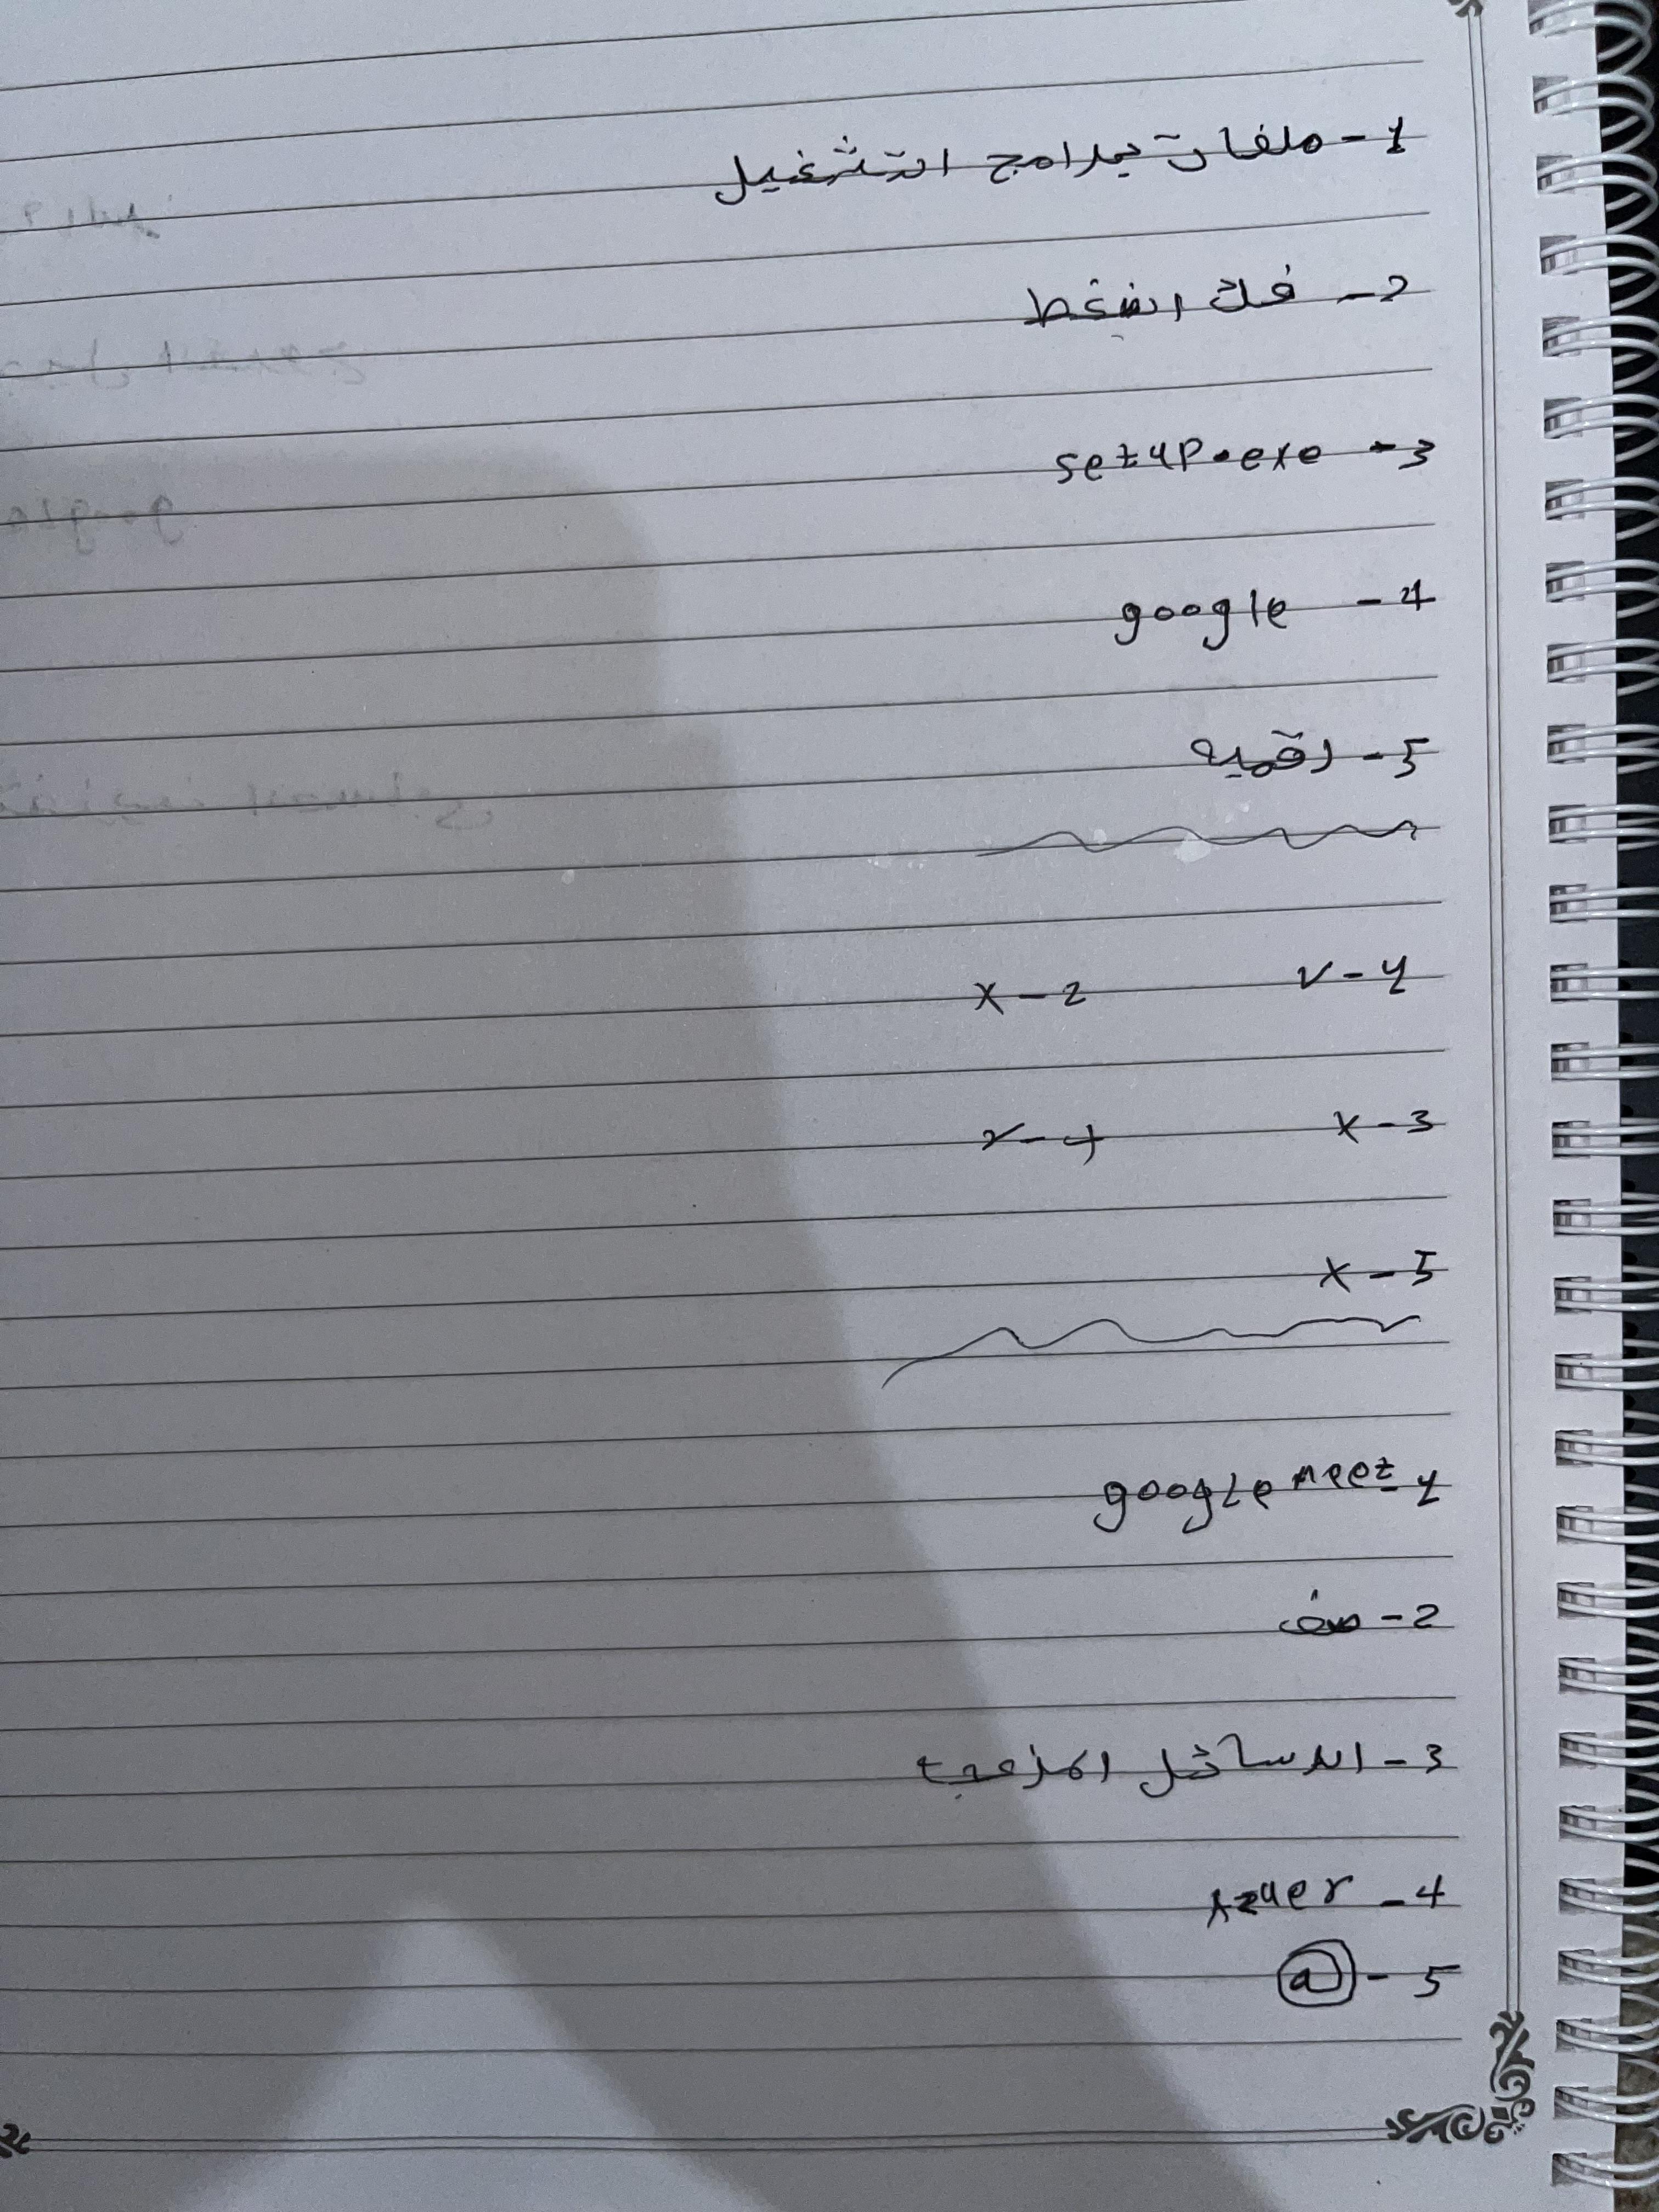 1- ملفات برامج التشغيل
2- فك الضغط
3- setup.exe
4- google
5- رقميه
1- ✓ 2- x
3- x 4- ✓
5- x
1- google meet
2- صف
3- الرسائل المزعجة
4- Azuer
5- @